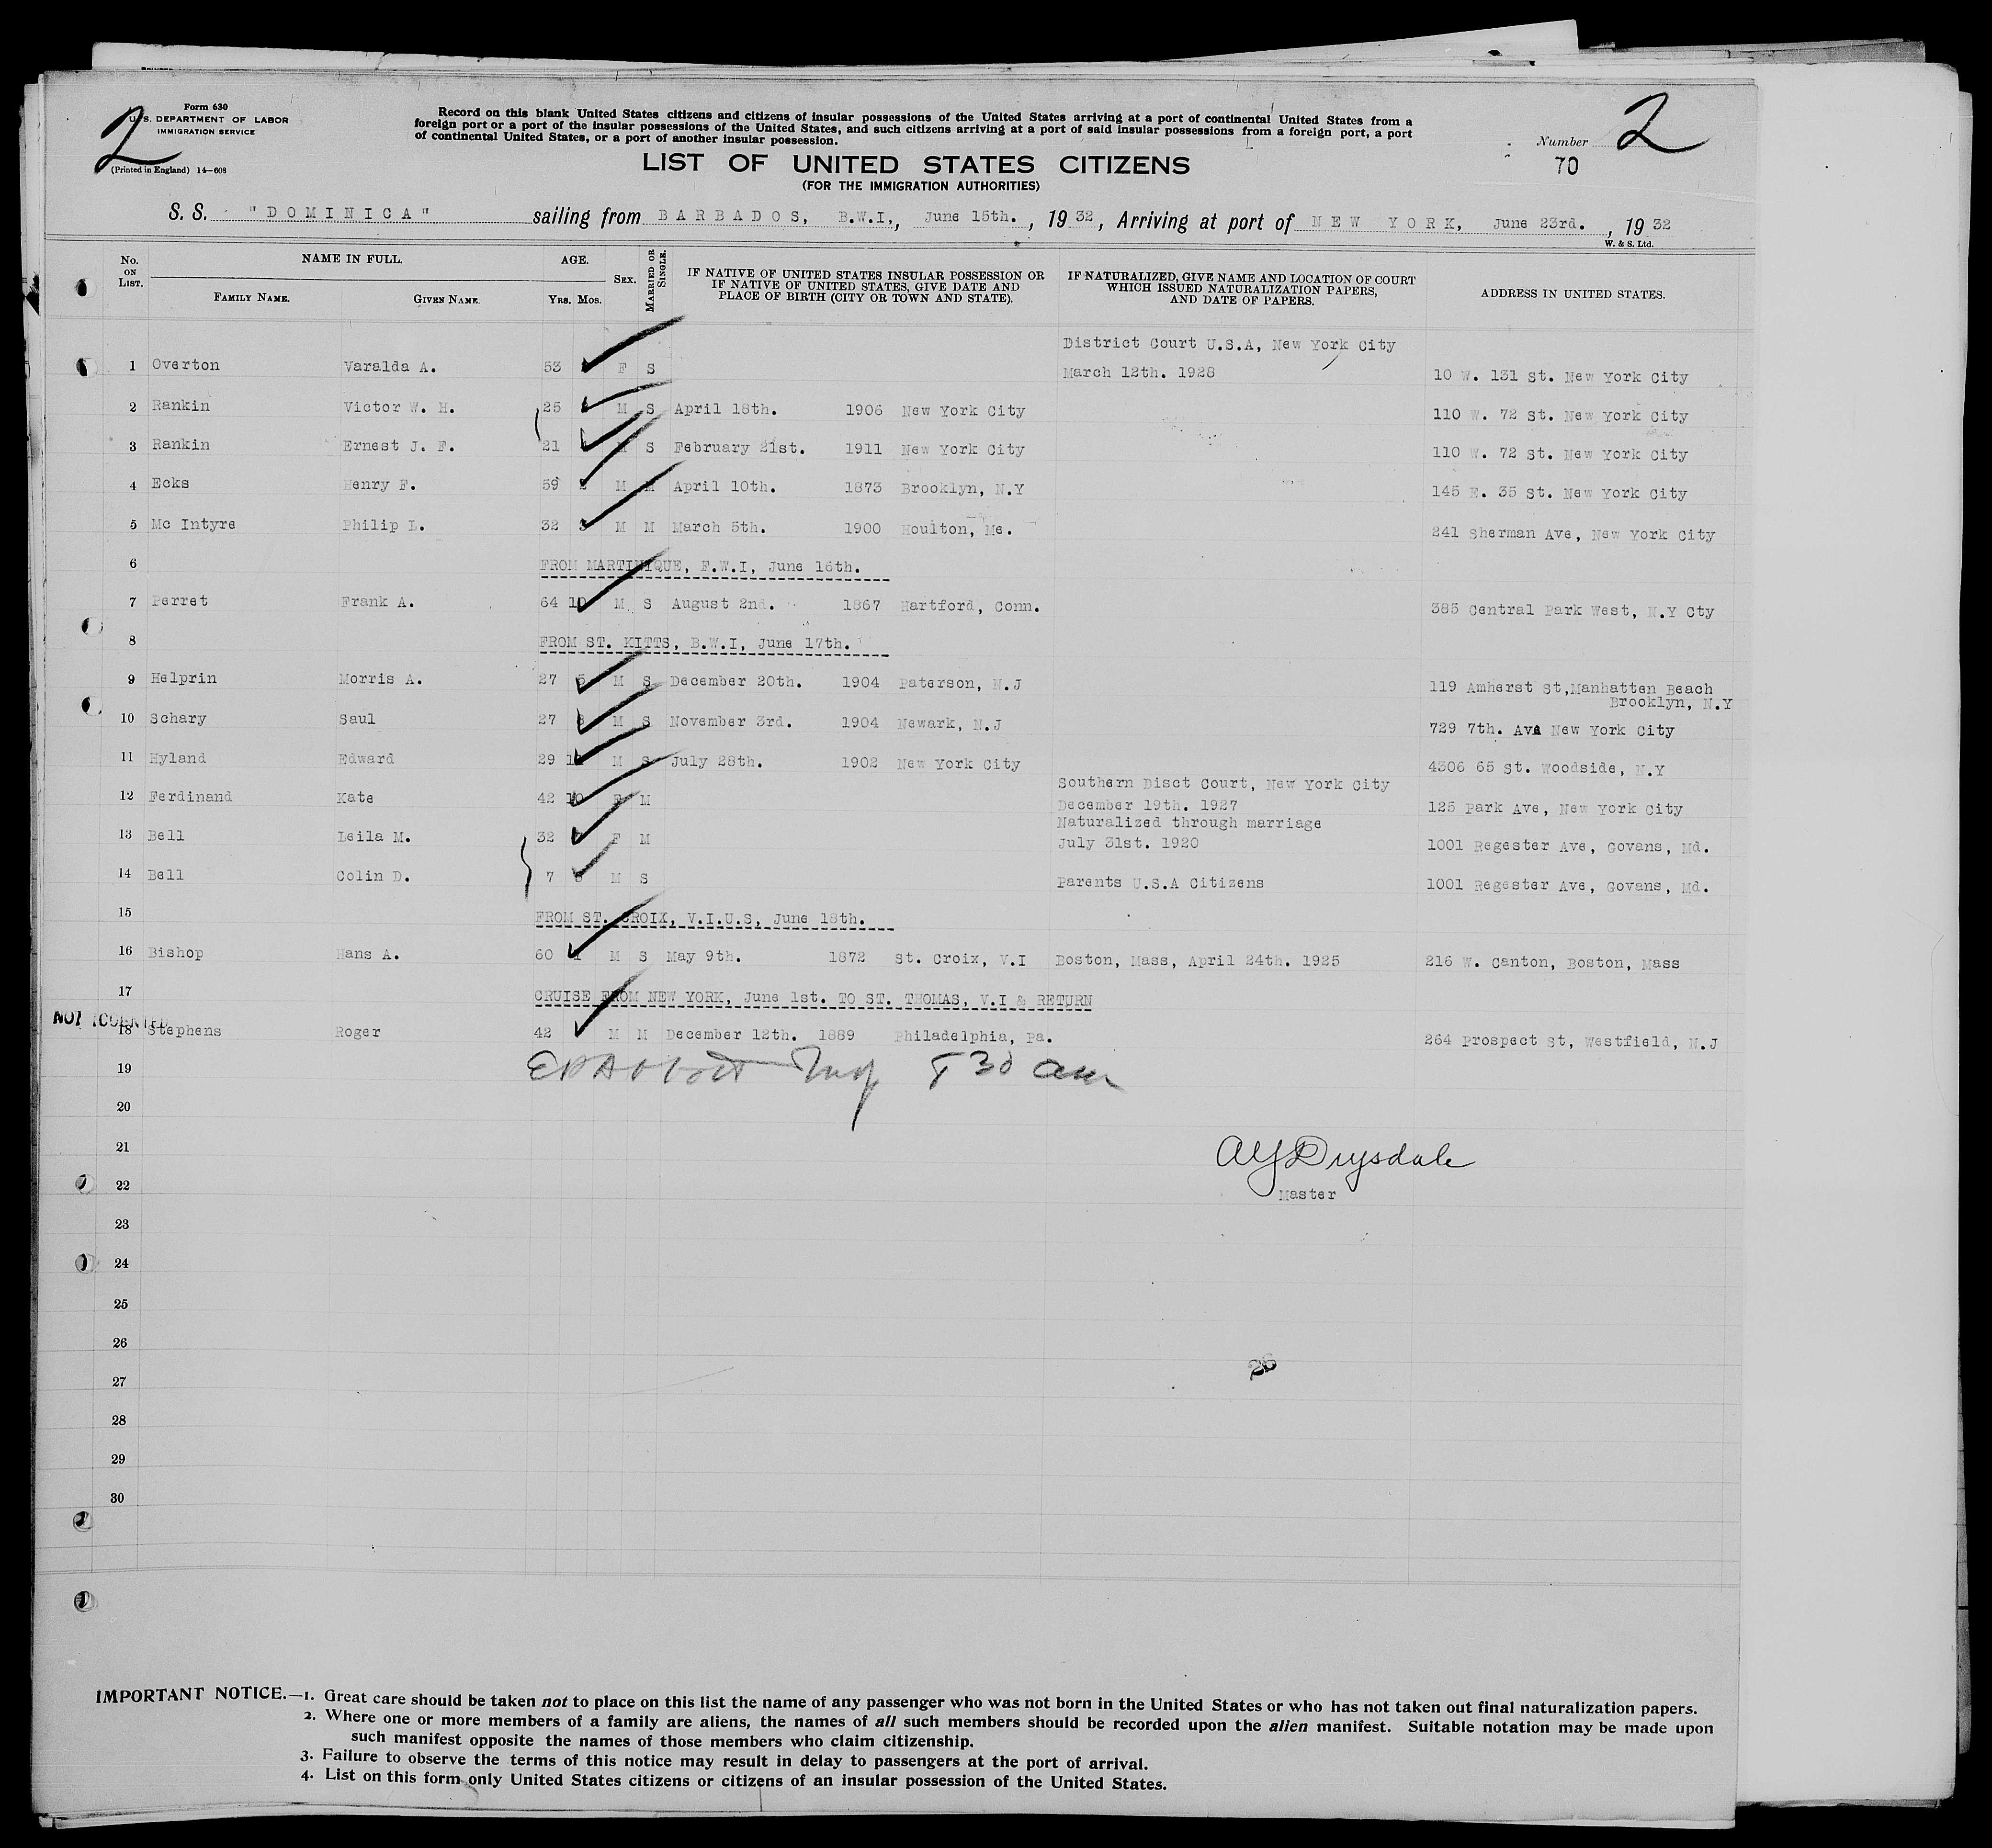 2
Form 630
U.S. DEPARTMENT OF LABOR
IMMIGRATION SERVICE
(Printed in England) 14—608
Record on this blank United States citizens and citizens of insular possessions of the United States arriving at a port of continental United States from a
foreign port or a port of the insular possessions of the United States, and such citizens arriving at a port of said insular possessions from a foreign port, a port
of continental United States, or a port of another insular possession.
Number 2
70
LIST OF UNITED STATES CITIZENS
(FOR THE IMMIGRATION AUTHORITIES)
S. S. "DOMINICA" sailing from BARBADOS, B.W.I., June 15th. , 1932, Arriving at port of NEW YORK, June 23rd. , 1932
W. & S. Ltd.
No. ON LIST. NAME IN FULL. FAMILY NAME. GIVEN NAME. AGE. YRS. MOS. SEX. MARRIED OR SINGLE. IF NATIVE OF UNITED STATES INSULAR POSSESSION OR IF NATIVE OF UNITED STATES, GIVE DATE AND PLACE OF BIRTH (CITY OR TOWN AND STATE). IF NATURALIZED, GIVE NAME AND LOCATION OF COURT WHICH ISSUED NATURALIZATION PAPERS, AND DATE OF PAPERS. ADDRESS IN UNITED STATES.
District Court U.S.A, New York City
1 Overton Varalda A. 53 F S March 12th. 1928 10 W. 131 St. New York City
2 Rankin Victor W. H. 25 M S April 18th. 1906 New York City 110 W. 72 St. New York City
3 Rankin Ernest J. F. 21 M S February 21st. 1911 New York City 110 W. 72 St. New York City
4 Ecks Henry F. 59 2 M M April 10th. 1873 Brooklyn, N.Y 145 E. 35 St. New York City
5 Mc Intyre Philip L. 32 3 M M March 5th. 1900 Houlton, Me. 241 Sherman Ave, New York City
6 FROM MARTINIQUE, F.W.I, June 16th.
7 Perret Frank A. 64 10 M S August 2nd. 1867 Hartford, Conn. 385 Central Park West, N.Y Cty
8 FROM ST. KITTS, B.W.I, June 17th.
9 Helprin Morris A. 27 5 M S December 20th. 1904 Paterson, N.J 119 Amherst St,Manhatten Beach
Brooklyn, N.Y
10 Schary Saul 27 M S November 3rd. 1904 Newark, N.J 729 7th. Ave New York City
11 Hyland Edward 29 M S July 28th. 1902 New York City 4306 65 St. Woodside, N.Y
Southern Disct Court, New York City
12 Ferdinand Kate 42 10 F M December 19th. 1927 125 Park Ave, New York City
Naturalized through marriage
13 Bell Leila M. 32 F M July 31st. 1920 1001 Regester Ave, Govans, Md.
14 Bell Colin D. 7 M S Parents U.S.A Citizens 1001 Regester Ave, Govans, Md.
15 FROM ST. CROIX, V.I.U.S, June 18th.
16 Bishop Hans A. 60 1 M S May 9th. 1872 St. Croix, V.I Boston, Mass, April 24th. 1925 216 W. Canton, Boston, Mass
17 CRUISE FROM NEW YORK, June 1st. TO ST. THOMAS, V.I & RETURN
NOT COUNTED
18 Stephens Roger 42 M M December 12th. 1889 Philadelphia, Pa. 264 Prospect St, Westfield, N.J
19 30 am
20
21 Drysdale
22 Master
23
24
25
26
26
27
28
29
30
IMPORTANT NOTICE.—1. Great care should be taken not to place on this list the name of any passenger who was not born in the United States or who has not taken out final naturalization papers.
2. Where one or more members of a family are aliens, the names of all such members should be recorded upon the alien manifest. Suitable notation may be made upon
such manifest opposite the names of those members who claim citizenship.
3. Failure to observe the terms of this notice may result in delay to passengers at the port of arrival.
4. List on this form only United States citizens or citizens of an insular possession of the United States.